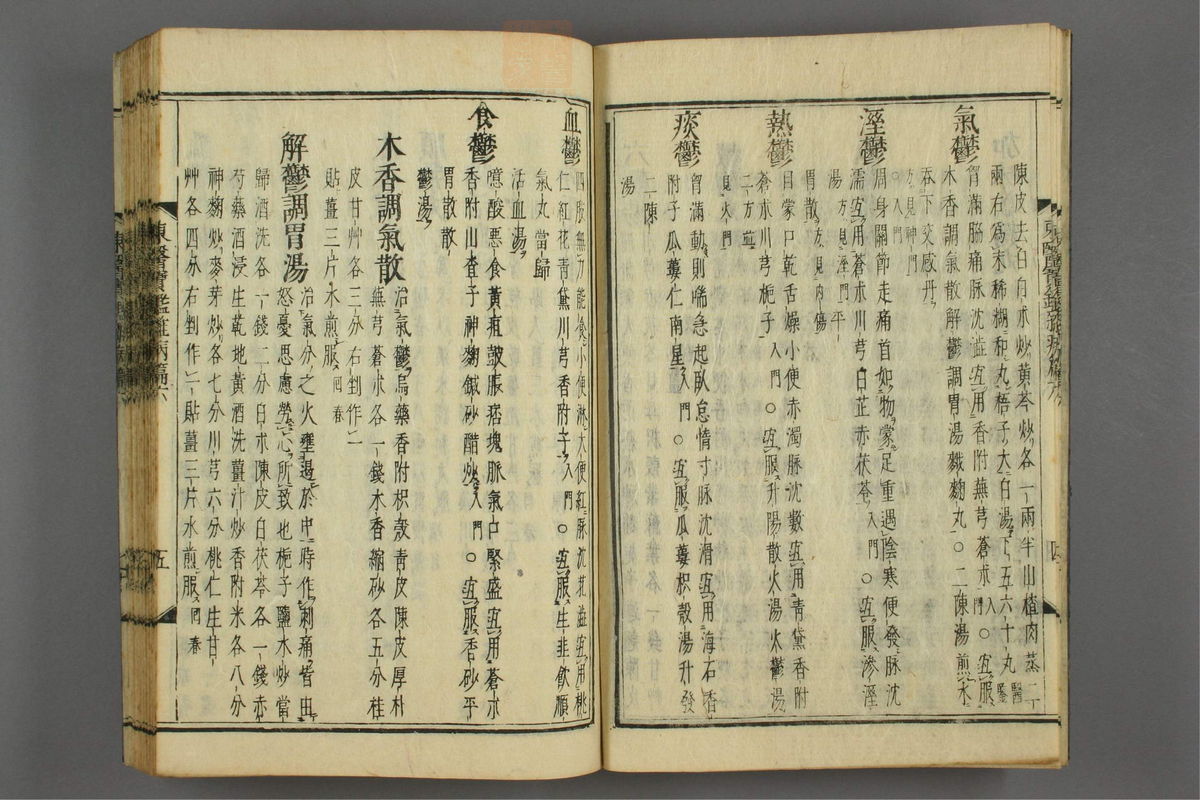 陳皮去白白朮炒黃芩炒各一兩半山楂肉蒸二
兩右爲末稀糊和丸梧子大白湯下五六十丸醫鑒
氣鬱
胷滿脇痛脉沈澁宜用香附蕪芎蒼朮入門○宜服
木香調氣散解鬱調胃湯麴丸○二陳湯煎水
吞下交感丹
方見神門
溼鬱
周身關節走痛首如物蒙足重遇陰寒便發脉沈
濡宜用蒼朮川芎白芷赤茯苓入門○宜服滲溼
湯方見溼門平
胃散方見內傷
熱鬱
目蒙口乾舌燥小便赤濁脉沈數宜用青黛香附
蒼朮川芎梔子入門○宜服升陽散火湯火鬱湯
二方並
見火門
痰鬱
胷滿動則喘急起臥怠惰寸脉沈滑宜用海石香
附子瓜蔞仁南星入門○宜服瓜蔞枳殼湯升發
二陳
湯
血鬱
四肢無力能食小便淋大便紅脉沈芤澁宜用桃
仁紅花青黛川芎香附子入門○宜服生韭飲順
氣丸當歸
活血湯
食鬱
噫酸惡食黃疸鼓脹痞塊脈氣口緊盛宜用蒼朮
香附山查子神麴鍼砂醋炒入門○宜服香砂平
胃散
鬱湯
木香調氣散
治氣鬱烏藥香附枳殼青皮陳皮厚朴
蕪芎蒼朮各一錢木香縮砂各五分桂
皮甘艸各三分右剉作一
貼薑三片水煎服回春
解鬱調胃湯
治氣分之火壅遏於中時作刺痛皆由
怒憂思慮勞心所致也梔子鹽水炒當
歸酒洗各一錢二分白朮陳皮白茯苓各一錢赤
芍藥酒浸生乾地黃酒洗薑汁炒香附米各八分
神麴炒麥芽炒各七分川芎六分桃仁生甘
艸各四分右剉作一貼薑三片水煎服回春
東醫寶鑑雜病篇六
五